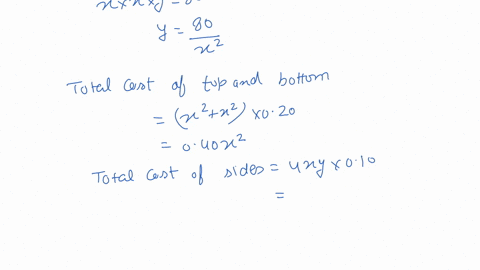 x × x × y = 8
y = 80 / x²
Total cost of top and bottom
= (x² + x²) × 0.20
= 0.40x²
Total cost of sides = 4xy × 0.10
=